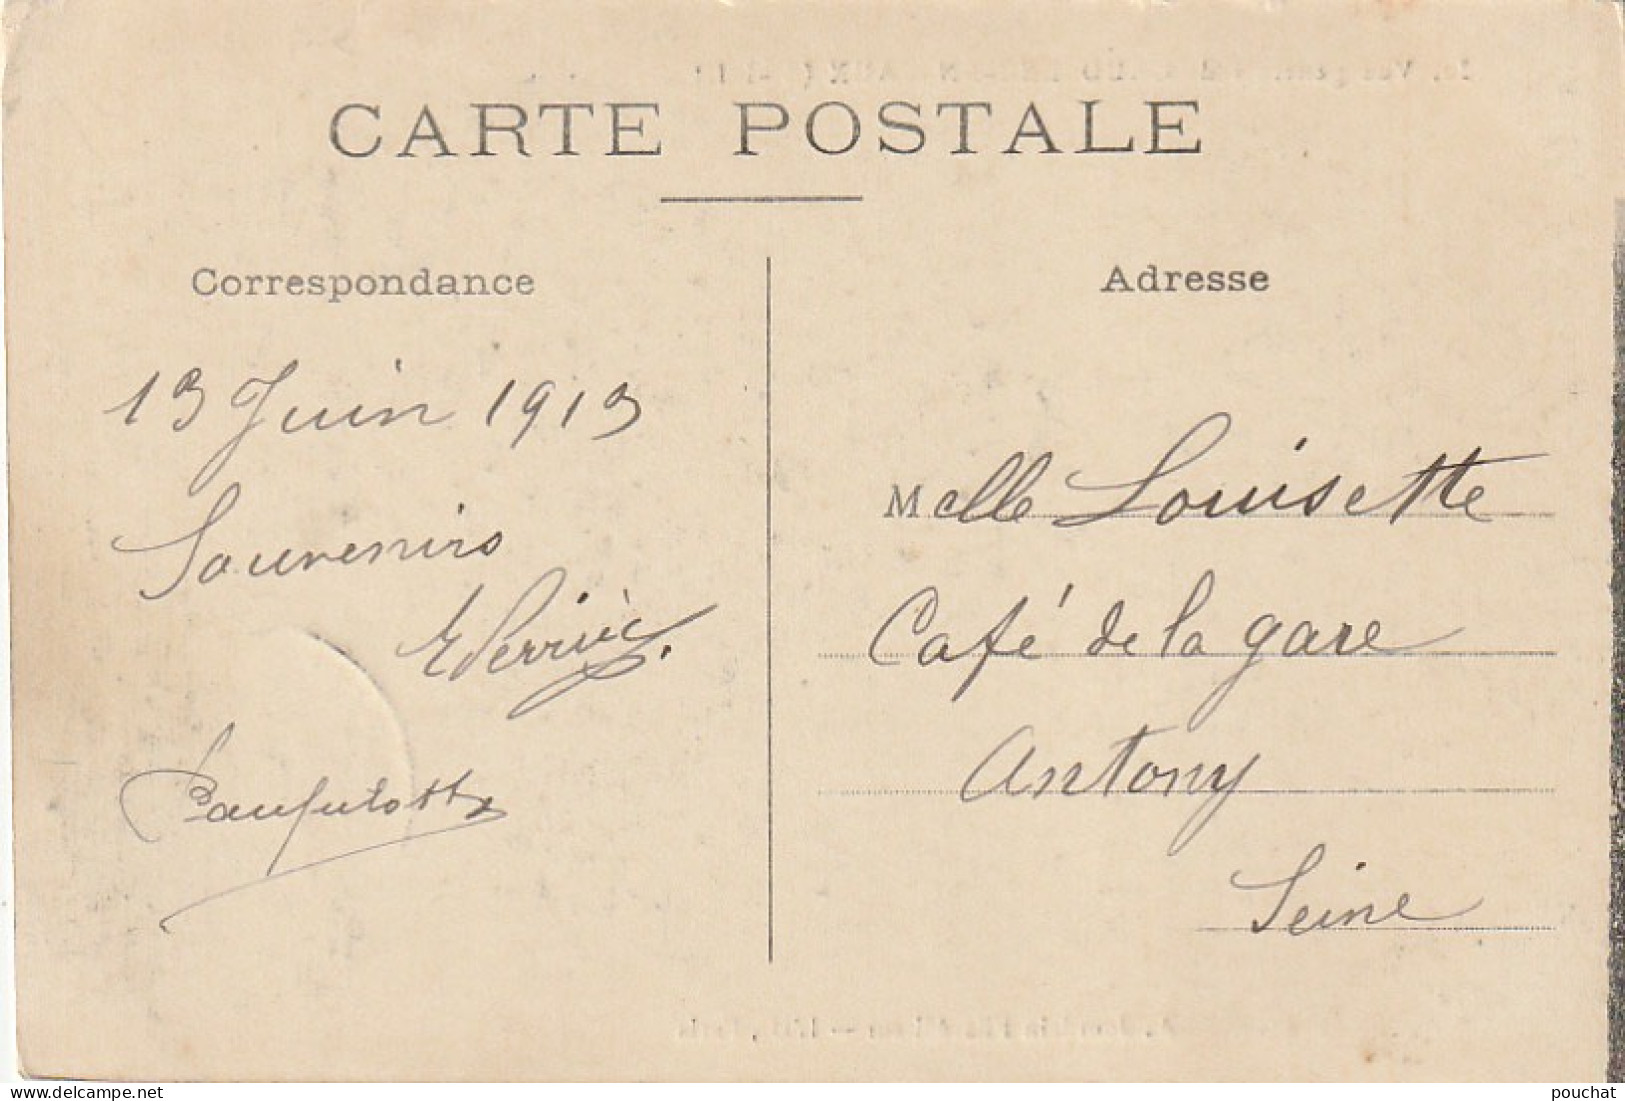 CARTE POSTALE
Correspondance
13 Juin 1913
Souvenirs
Adresse
Melle Louisette
Café de la gare
Antony
Seine
www.delcampe.net
pouchat